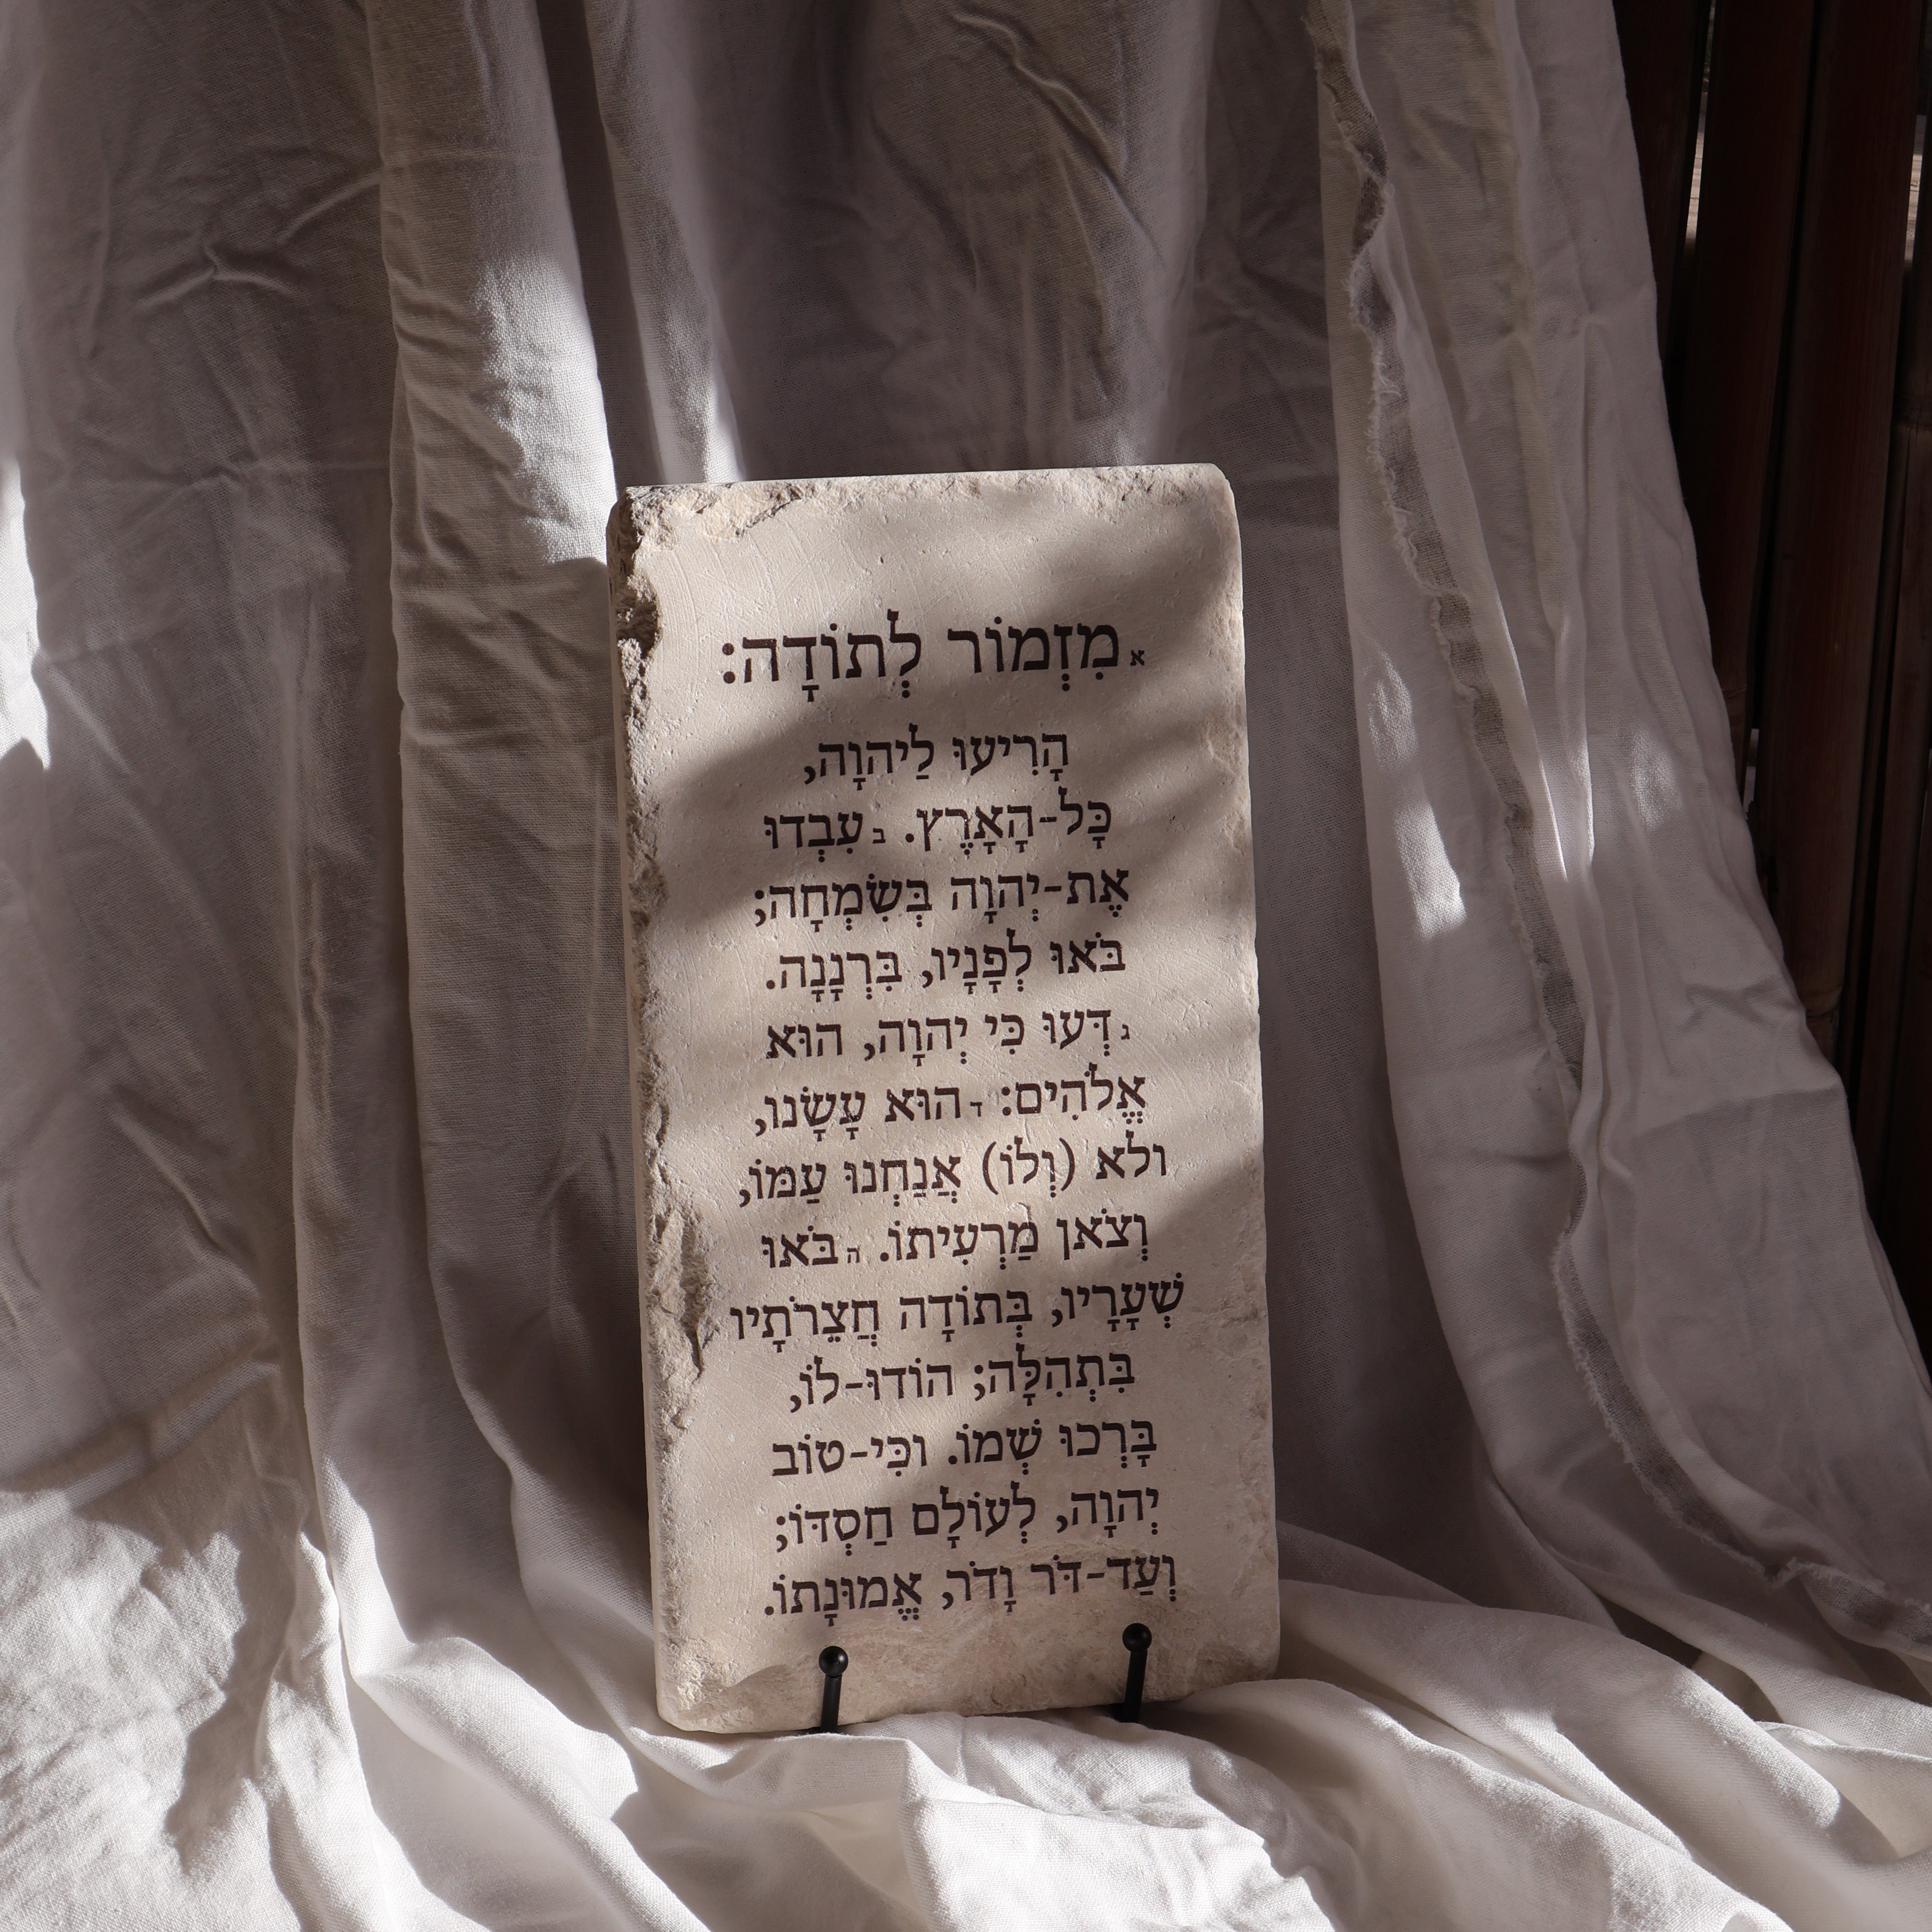 א מִזְמוֹר לְתוֹדָה:
הָרִיעוּ לַיהוָה,
כָּל-הָאָרֶץ. ב עִבְדוּ
אֶת-יְהוָה בְּשִׂמְחָה;
בֹּאוּ לְפָנָיו, בִּרְנָנָה.
ג דְּעוּ כִּי יְהוָה, הוּא
אֱלֹהִים: ד הוּא עָשָׂנוּ,
ולא (וְלוֹ) אֲנַחְנוּ עַמּוֹ,
וְצֹאן מַרְעִיתוֹ. ה בֹּאוּ
שְׁעָרָיו, בְּתוֹדָה חֲצֵרֹתָיו
בִּתְהִלָּה; הוֹדוּ-לוֹ,
בָּרְכוּ שְׁמוֹ. וכִּי-טוֹב
יְהוָה, לְעוֹלָם חַסְדּוֹ;
וְעַד-דֹּר וָדֹר, אֱמוּנָתוֹ.